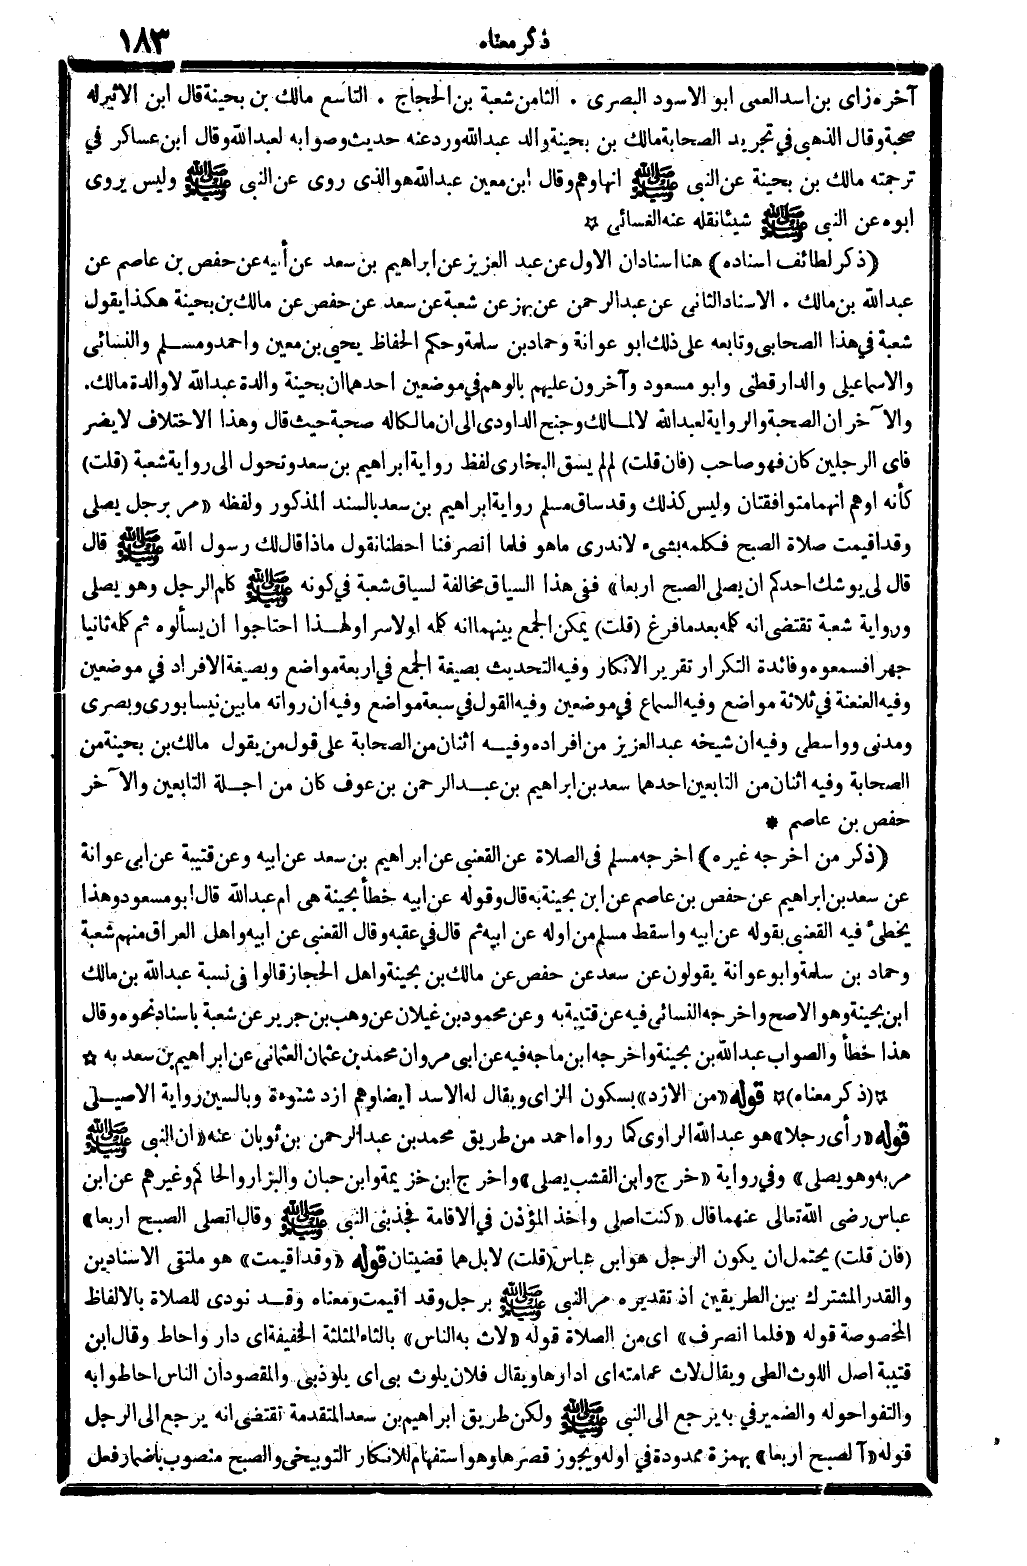 ذكر معناه
١٨٣
آخره زاى بن اسد العمى ابو الاسود البصرى . الثامن شعبة بن الحجاج . التاسع مالك بن بحينة قال ابن الاثير له
صحبة وقال الذهبى في تجريد الصحابة مالك بن بحينة والد عبدالله وردعنه حديث وصوابه لعبدالله وقال ابن عساكر في
ترجمته مالك بن بحينة عن النبى ﷺ انها وهم وقال ابن معين عبدالله هوالذى روى عن النبى ﷺ وليس يروى
ابوه عن النبى ﷺ شيئا نقله عنه الغسائى ☆
(ذكر لطائف اسناده) هنا اسنادان الاول عن عبد العزيز عن ابراهيم بن سعد عن أبيه عن حفص بن عاصم عن
عبدالله بن مالك . الاسناد الثانى عن عبدالرحمن عن بهز عن شعبة عن سعد عن حفص عن مالك بن بحينة هكذا يقول
شعبة في هذا الصحابى وتابعه على ذلك ابو عوانة وحماد بن سلمة وحكم الحفاظ يحيى بن معين واحمد ومسلم والنسائى
والاسماعيلى والدارقطنى وابو مسعود وآخرون عليهم بالوهم في موضعين احدهما ان بحينة والدة عبدالله لا والدة مالك.
والآخر ان الصحبة والرواية لعبدالله لا لمالك وجنح الداودى الى ان مالكا له صحبة حيث قال وهذا الاختلاف لا يضر
فاى الرجلين كان فهو صاحب (فان قلت) لم لم يسق البخارى لفظ رواية ابراهيم بن سعد وتحول الى رواية شعبة (قلت)
كأنه اوهم انهما متوافقتان وليس كذلك وقد ساق مسلم رواية ابراهيم بن سعد بالسند المذكور ولفظه «مر برجل يصلى
وقد اقيمت صلاة الصبح فكلمه بشىء لاندرى ماهو فلما انصرفنا احطنا نقول ماذا قال لك رسول الله ﷺ قال
قال لى يوشك احدكم ان يصلى الصبح اربعا» ففى هذا السياق مخالفة لسياق شعبة في كونه ﷺ كلم الرجل وهو يصلى
ورواية شعبة تقتضى انه كلمه بعد ما فرغ (قلت) يمكن الجمع بينهما انه كلمه اولا سرا ولهذا احتاجوا ان يسألوه ثم كلمه ثانيا
جهرا فسمعوه وفائدة التكرار تقرير الانكار وفيه التحديث بصيغة الجمع في اربعة مواضع وبصيغة الافراد في موضعين
وفيه العنعنة في ثلاثة مواضع وفيه السماع في موضعين وفيه القول في سبعة مواضع وفيه ان رواته ما بين نيسابورى وبصرى
ومدنى وواسطى وفيه ان شيخه عبدالعزيز من افراده وفيه اثنان من الصحابة على قول من يقول مالك بن بحينة من
الصحابة وفيه اثنان من التابعين احدهما سعد بن ابراهيم بن عبدالرحمن بن عوف كان من اجلة التابعين والآخر
حفص بن عاصم *
(ذكر من اخرجه غيره) اخرجه مسلم فى الصلاة عن القعنبى عن ابراهيم بن سعد عن ابيه وعن قتيبة عن ابى عوانة
عن سعد بن ابراهيم عن حفص بن عاصم عن ابن بحينة به قال وقوله عن ابيه خطأ بحينة هى ام عبدالله قال ابو مسعود وهذا
يخطئ فيه القعنبى بقوله عن ابيه واسقط مسلم من اوله عن ابيه ثم قال في عقبه وقال القعنبى عن ابيه واهل العراق منهم شعبة
وحماد بن سلمة وابو عوانة يقولون عن سعد عن حفص عن مالك بن بحينة واهل الحجاز قالوا فى نسبة عبدالله بن مالك
ابن بحينة وهو الاصح واخرجه النسائى فيه عن قتيبة به وعن محمود بن غيلان عن وهب بن جرير عن شعبة باسناد نحوه وقال
هذا خطأ والصواب عبدالله بن بحينة واخرجه ابن ماجه فيه عن ابى مروان محمد بن عثمان العثمانى عن ابراهيم بن سعد به ☆
☆(ذكر معناه)☆ قوله «من الازد» بسكون الزاى ويقال له الاسد ايضا وهم ازد شنوءة وبالسين رواية الاصيلى
قوله «رأى رجلا» هو عبدالله الراوى كما رواه احمد من طريق محمد بن عبد الرحمن بن ثوبان عنه «ان النبى ﷺ
مر به وهو يصلى» وفي رواية «خرج وابن القشب يصلى» واخرج ابن خزيمة وابن حبان والبزار والحاكم وغيرهم عن ابن
عباس رضى الله تعالى عنهما قال «كنت اصلى واخذ المؤذن في الاقامة فجذبنى النبى ﷺ وقال اتصلى الصبح اربعا»
(فان قلت) يحتمل ان يكون الرجل هو ابن عباس (قلت) لا بل هما قضيتان قوله «وقد اقيمت» هو ملتقى الاسنادين
والقدر المشترك بين الطريقين اذ تقديره مر النبى ﷺ برجل وقد اقيمت ومعناه وقد نودى للصلاة بالالفاظ
المخصوصة قوله «فلما انصرف» اى من الصلاة قوله «لاث به الناس» بالثاء المثلثة الخفيفة اى دار واحاط وقال ابن
قتيبة اصل اللوث الطى ويقال لاث عمامته اى ادارها ويقال فلان يلوث بى اى يلوذ بى والمقصود ان الناس احاطوا به
والتفوا حوله والضمير في به يرجع الى النبى ﷺ ولكن طريق ابراهيم بن سعد المتقدمة تقتضى انه يرجع الى الرجل
قوله «آلصبح اربعا» بهمزة ممدودة في اوله ويجوز قصرها وهو استفهام للانكار التوبيخى والصبح منصوب باضمار فعل